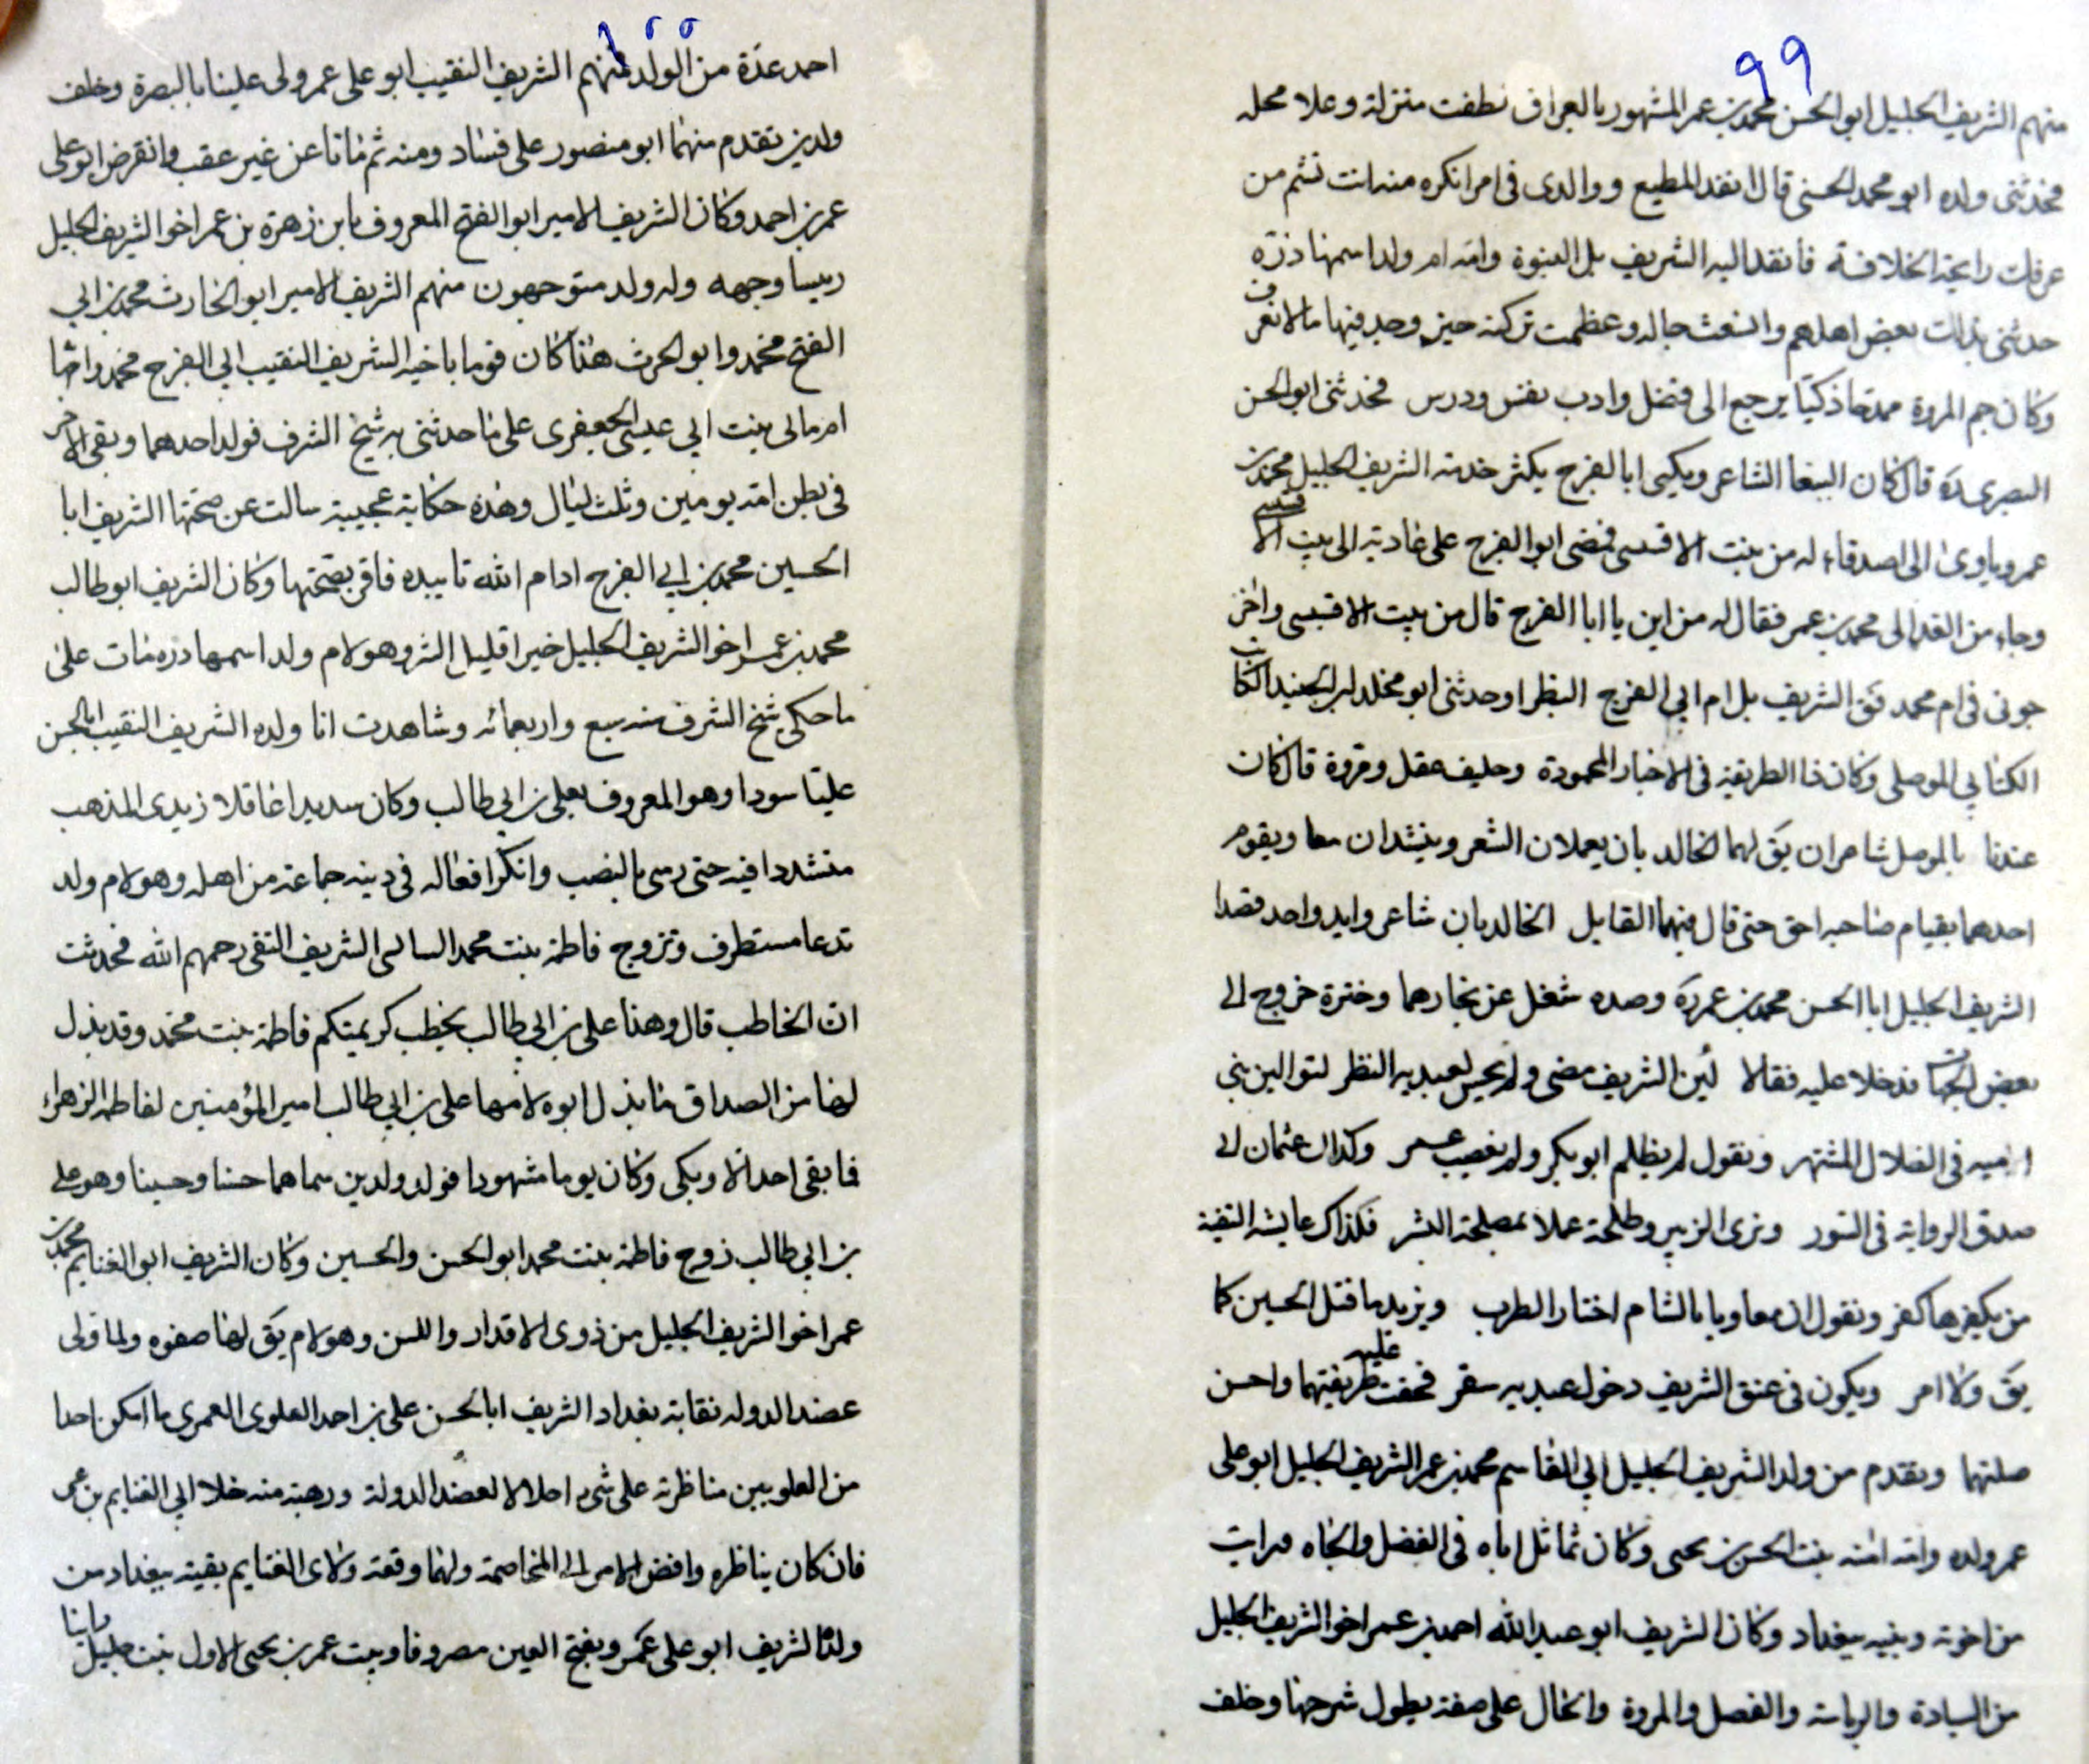 99
منهم الشريف الجليل ابو الحسن محمد بن عمر المشهور بالعراف نطفت منزلة وعلا محله
فحدثنى ولده ابو محمد الحسنى قال انفد المطيع ووالدى فى امر انكره منه انت تشم من
عرفات رايحة الخلافة فانفد اليه الشريف بل النبوة وامه ام ولد اسمها ذرّه
حدثنى بذلك بعض اهلهم واتسعت حاله وعظمت تركته حيز وجد فيها ما لا يعرف
وكان جم المروة ممتعا ذكيّا يرجع الى فضل وادب نفس ودرس فحدثنى ابو الحسن
البصرى ره قال كان الببغا الشاعر ويكنى ابا الفرج يكثر خدمة الشريف الجليل محمد بن
عمر وياوى الى اصدقاء له من بنت الاقبسى فمضى ابو الفرج على عادته الى بيت الاقبسى
وجاء من الغد الى محمد بن عمر فقال له من اين يا ابا الفرج قال من بيت الاقبسى واخر
جونى فى ام محمد فق الشريف بل ام ابى الفرج البظرا وحدثنى ابو مخلد ابن الجنيد الكاتب
الكتابى الموصلى وكان ذا الطريقة فى الاخبار المحمودة وحليف عقل ومروة قال كان
عندنا بالموصل شاعران يق لهما الخالديان يعملان الشعر وينشدان معا ويقوم
احدهما بقيام صاحبه احق حتى قال فيهما القايل الخالديان شاعر وايد واحد فقصدا
الشريف الجليل ابا الحسن محمد بن عمر ره وصده شغل عن بخارهما وحضره خروج الى
بعض الجهات فدخلا عليه فقالا لئن الشريف مضى ولم يحبس لعبديه النظر لنوالين بنى
اميه فى الضلال المشتهر ونقول لم يظلم ابو بكر ولم يغصب عمر وكذاك عثمان الى
صدق الرواية فى السور ونرى الزبير وطلحة عملا بمصلحة البشر فكذاك عايشه التقية
من يكفرها كفر ونقول ان معاويا بالشام اختار الطرب ويزيد ما قتل الحسين كما
يق ولا امر ويكون فى عنق الشريف دخول عبديه سقر فخفت عليه طريقتهما واحسن
صلتهما وتقدم من ولد الشريف الجليل ابى القاسم محمد بن عمر الشريف الجليل ابو على
عمر ولده وامه امنه بنت الحسن بن يحيى وكان تماثل اباه فى الفضل والجاه ورايت
من اخوته وبنيه ببغداد وكان الشريف ابو عبد الله احمد بن عمر اخو الشريف الجليل
من السيادة والرياسة والفضل والمروة والحال على صفة يطول شرحها وخلف
100
احمد عدّة من الولد منهم الشريف النقيب ابو على عمر ولى علينا بالبصرة وخلف
ولدين تقدم منهما ابو منصور على فساد ومنه ثم ماتا عن غير عقب وانقرض ابو على
عمر بن احمد وكان الشريف الامير ابو الفتح المعروف بابن زهرة بن عمر اخو الشريف الجليل
ريسا وجهه وله ولد متوجهون منهم الشريف الامير ابو الحارث محمد بن ابي
الفتح محمد وابو الحرث هذا كان توما باخيه الشريف النقيب ابي الفرج محمد وامها
ام مالى بنت ابي عيسى الجعفرى على ما حدثنى به شيخ الشرف فولد احدهما وبقى الاخر
فى بطن امه يومين وثلث ليال وهذه حكاية عجيبة سالت عن صحتها الشريف ابا
الحسين محمد بن ابي الفرج ادام الله تاييده فاقر بصحتها وكان الشريف ابو طالب
محمد بن عمر اخو الشريف الجليل خيرا قليل الشر وهو لام ولد اسمها دره مات على
ما حكى شيخ الشرف سنه سبع واربعمائه وشاهدت انا ولده الشريف النقيب ابا الحسن
عليّا سورا وهو المعروف بعلى بن ابي طالب وكان سديدا عاقلا زيدى المذهب
متشددا فيه حتى رمى بالنصب وانكر افعاله فى دينه جماعة من اهله وهو لام ولد
تدعا مستطرف وتزوج فاطمة بنت محمد السابسى الشريف التقى رحمهم الله فحدثت
ان الخاطب قال وهذا على بن ابي طالب يخطب كريمتكم فاطمة بنت محمد وقد بذل
لها من الصداق ما بذل ابوه لامها على بن ابي طالب امير المؤمنين لفاطمة الزهراء
فما بقى احد الا وبكى وكان يوما مشهودا فولد ولدين سماهما حسنا وحسينا وهو على
بن ابي طالب زوج فاطمة بنت محمد ابو الحسن والحسين وكان الشريف ابو الغنايم محمد بن
عمر اخو الشريف الجليل من ذوى الاقدار واللسن وهو لام يق لها صفوه ولما ولى
عضد الدوله نقابة بغداد الشريف ابا الحسن على بن احمد العلوى العمرى ما امكن احدا
من العلويين مناظرته على شىء اجلالا لعضد الدولة ورهبته منه خلا ابي الغنايم بن عمر
فان كان يناظره وافضى الامر الى المخاصمة ولهما وقعة ولابى الغنايم بقية ببغداد من
ولد الشريف ابو على عمر وبفتح العين مصروفا وبيت عمر بن يحيى الاول بنت جليل راينا